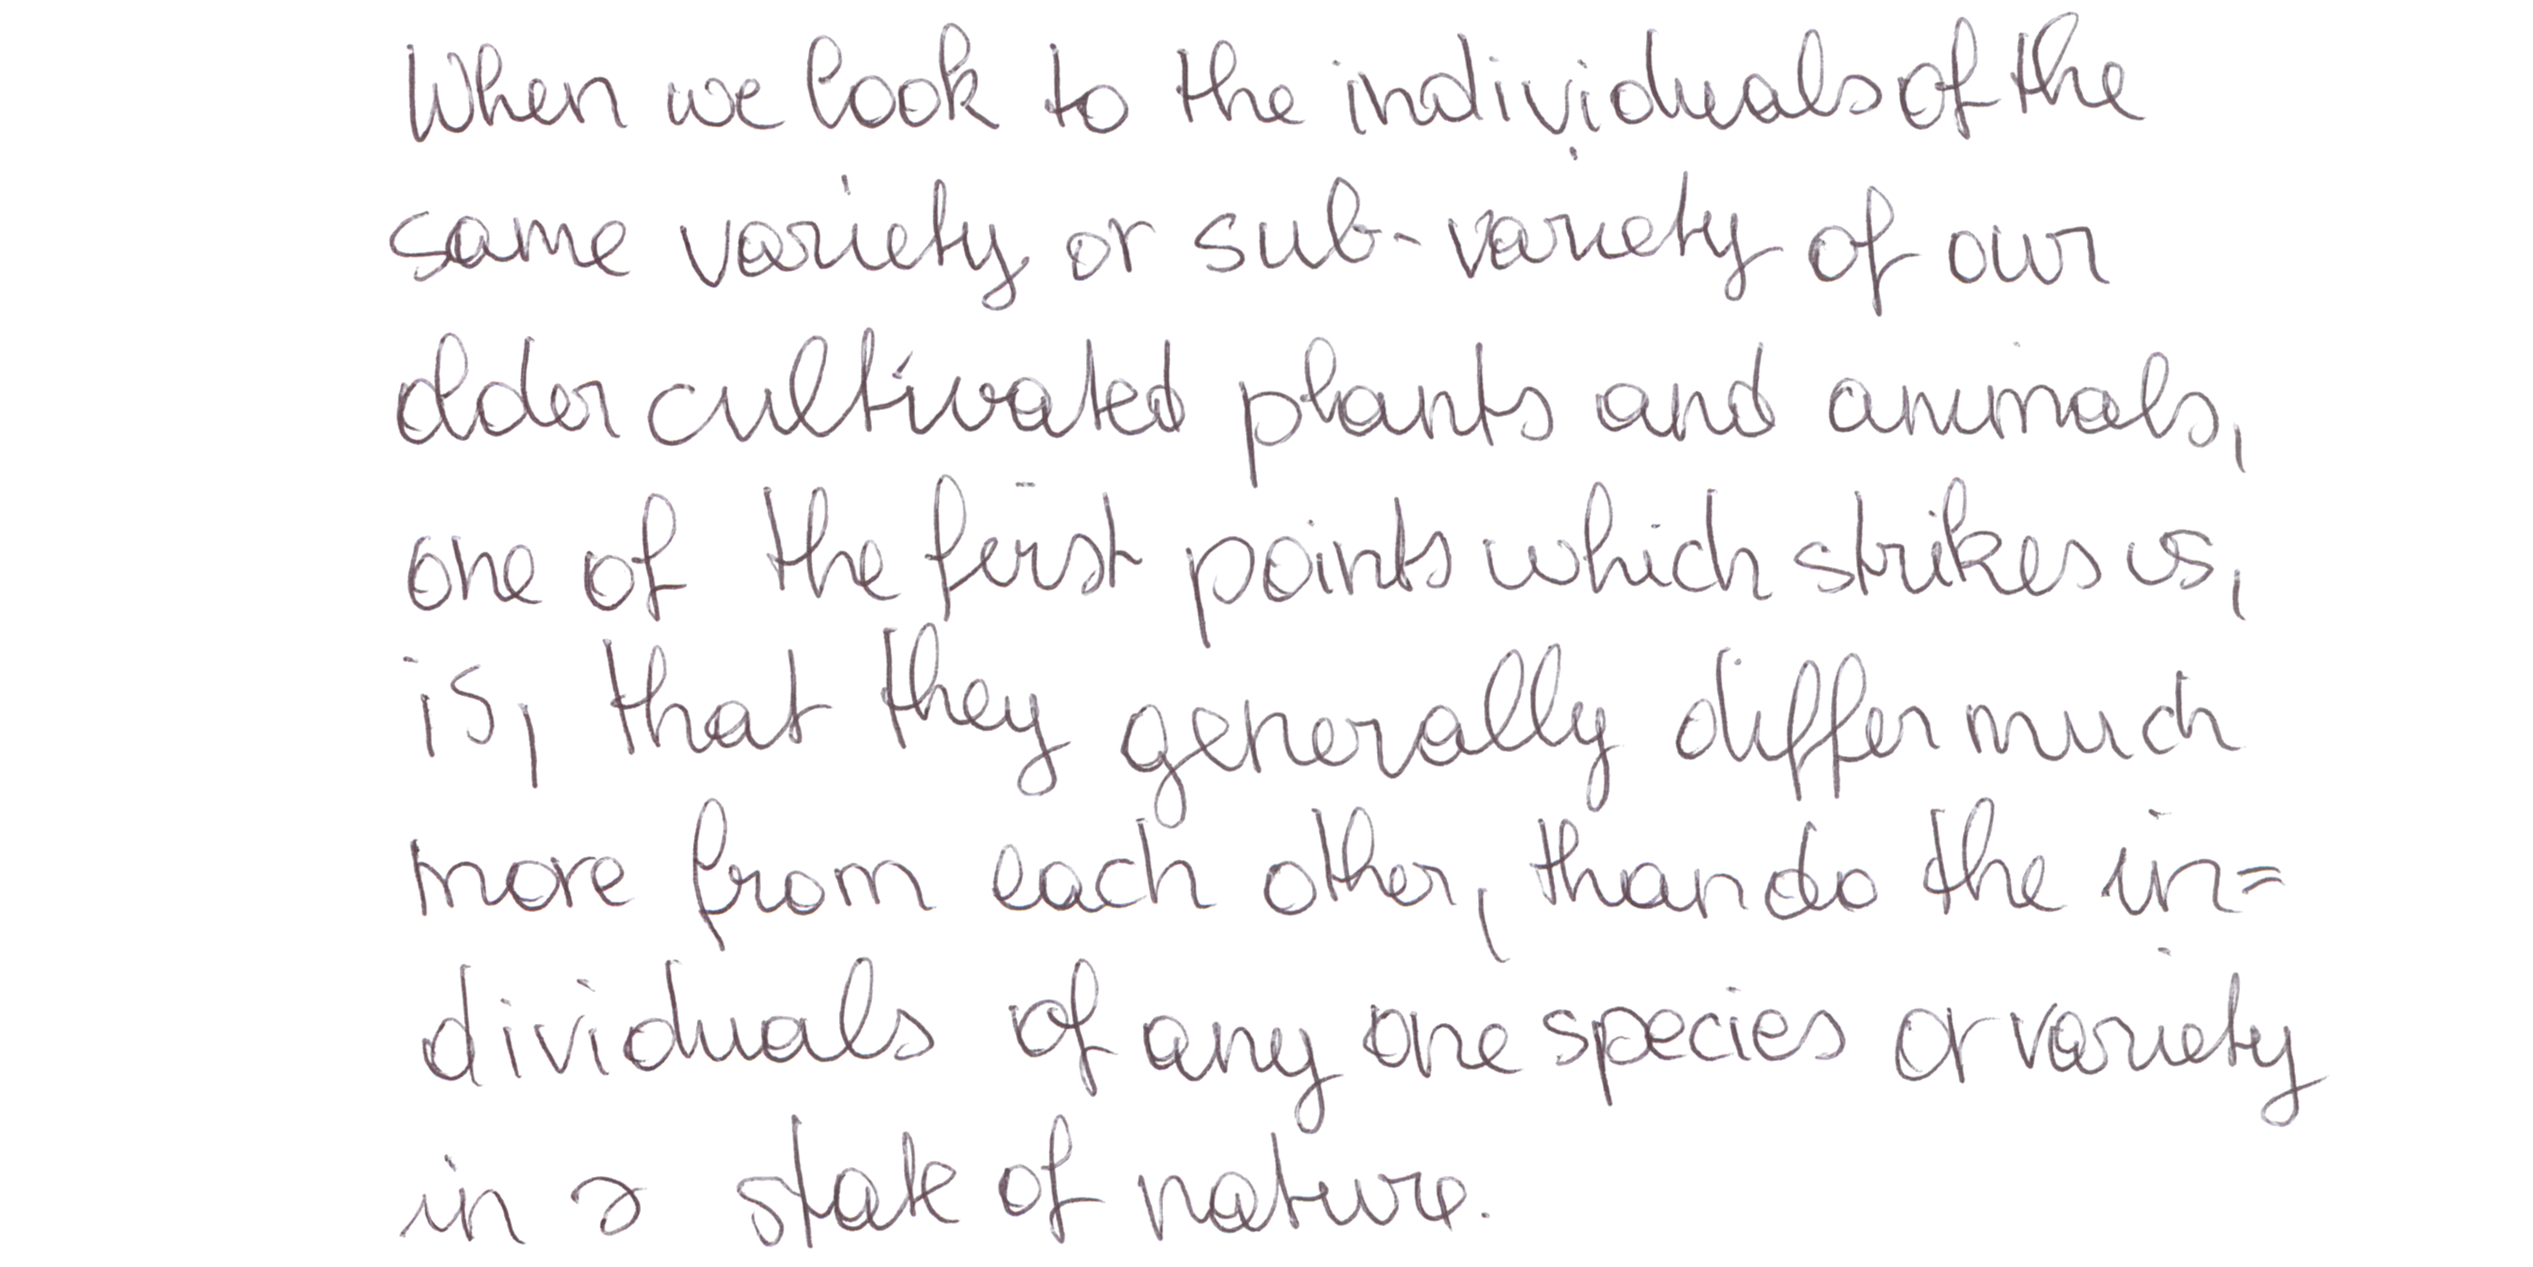 When we look to the individuals of the
same variety or sub-variety of our
older cultivated plants and animals,
one of the first points which strikes us,
is, that they generally differ much
more from each other, than do the in=
dividuals of any one species or variety
in a state of nature.